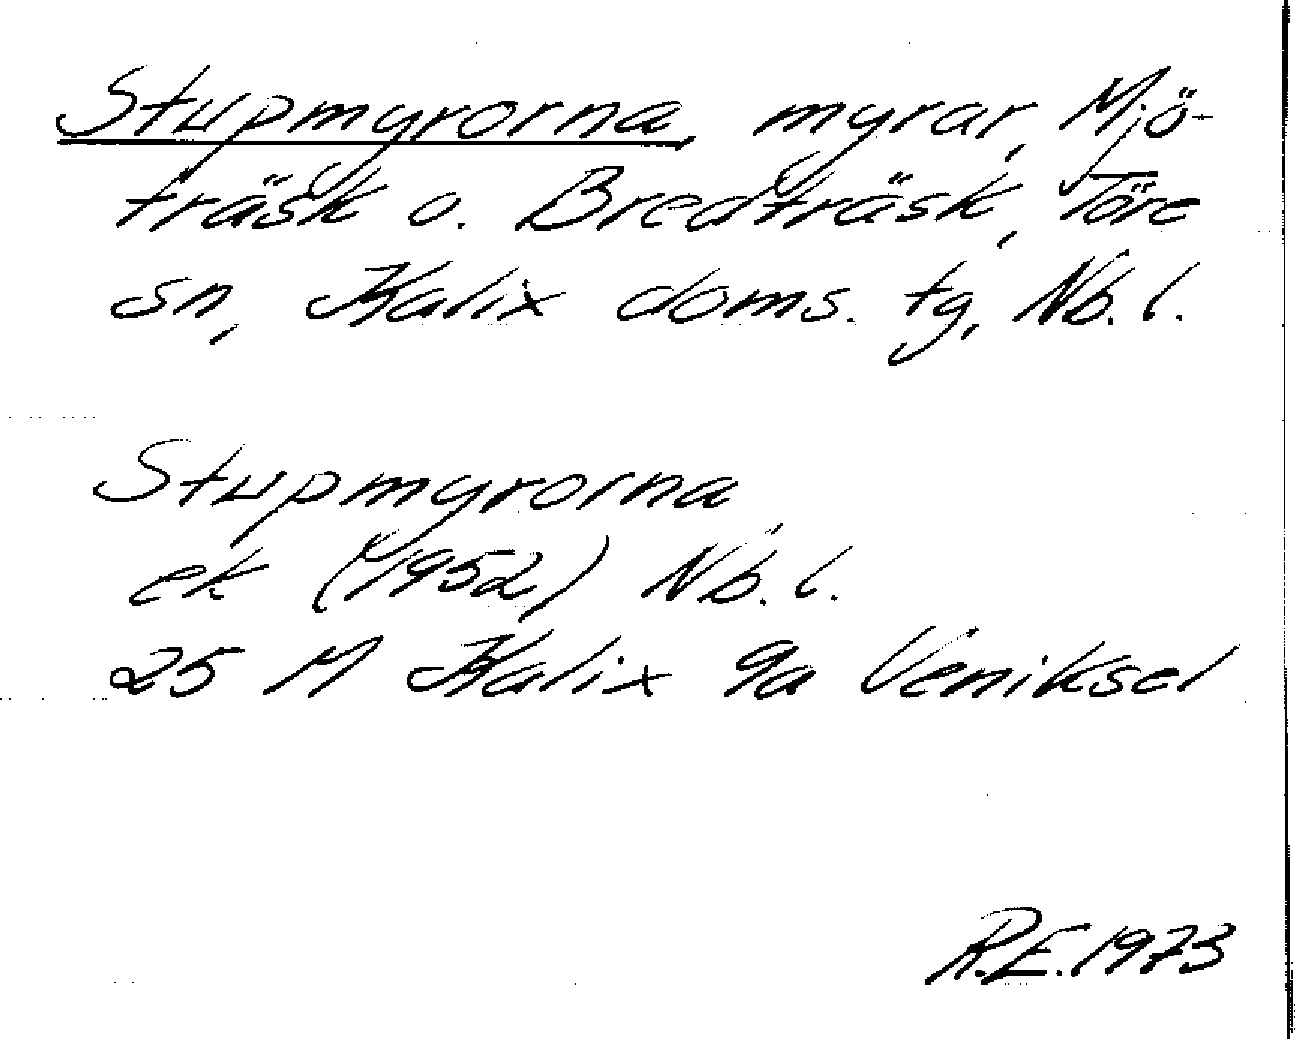 Stupmyrorna, myrar, Mjö-
träsk o. Bredträsk, Töre
sn, Kalix doms. tg, Nb. l.
Stupmyrorna
ek (1952) Nb. l.
25 M Kalix 9a Veniksel
R.E. 1973